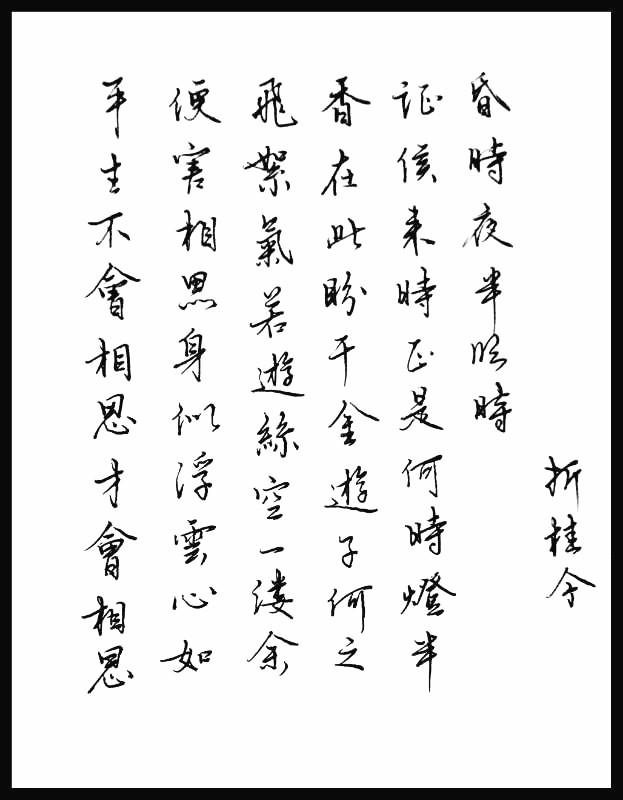 平生不會相思才會相思
便害相思身似浮雲心如
飛絮氣若遊絲空一縷余
香在此盼千金遊子何之
証候來時正是何時燈半
昏時夜半明時
折桂令